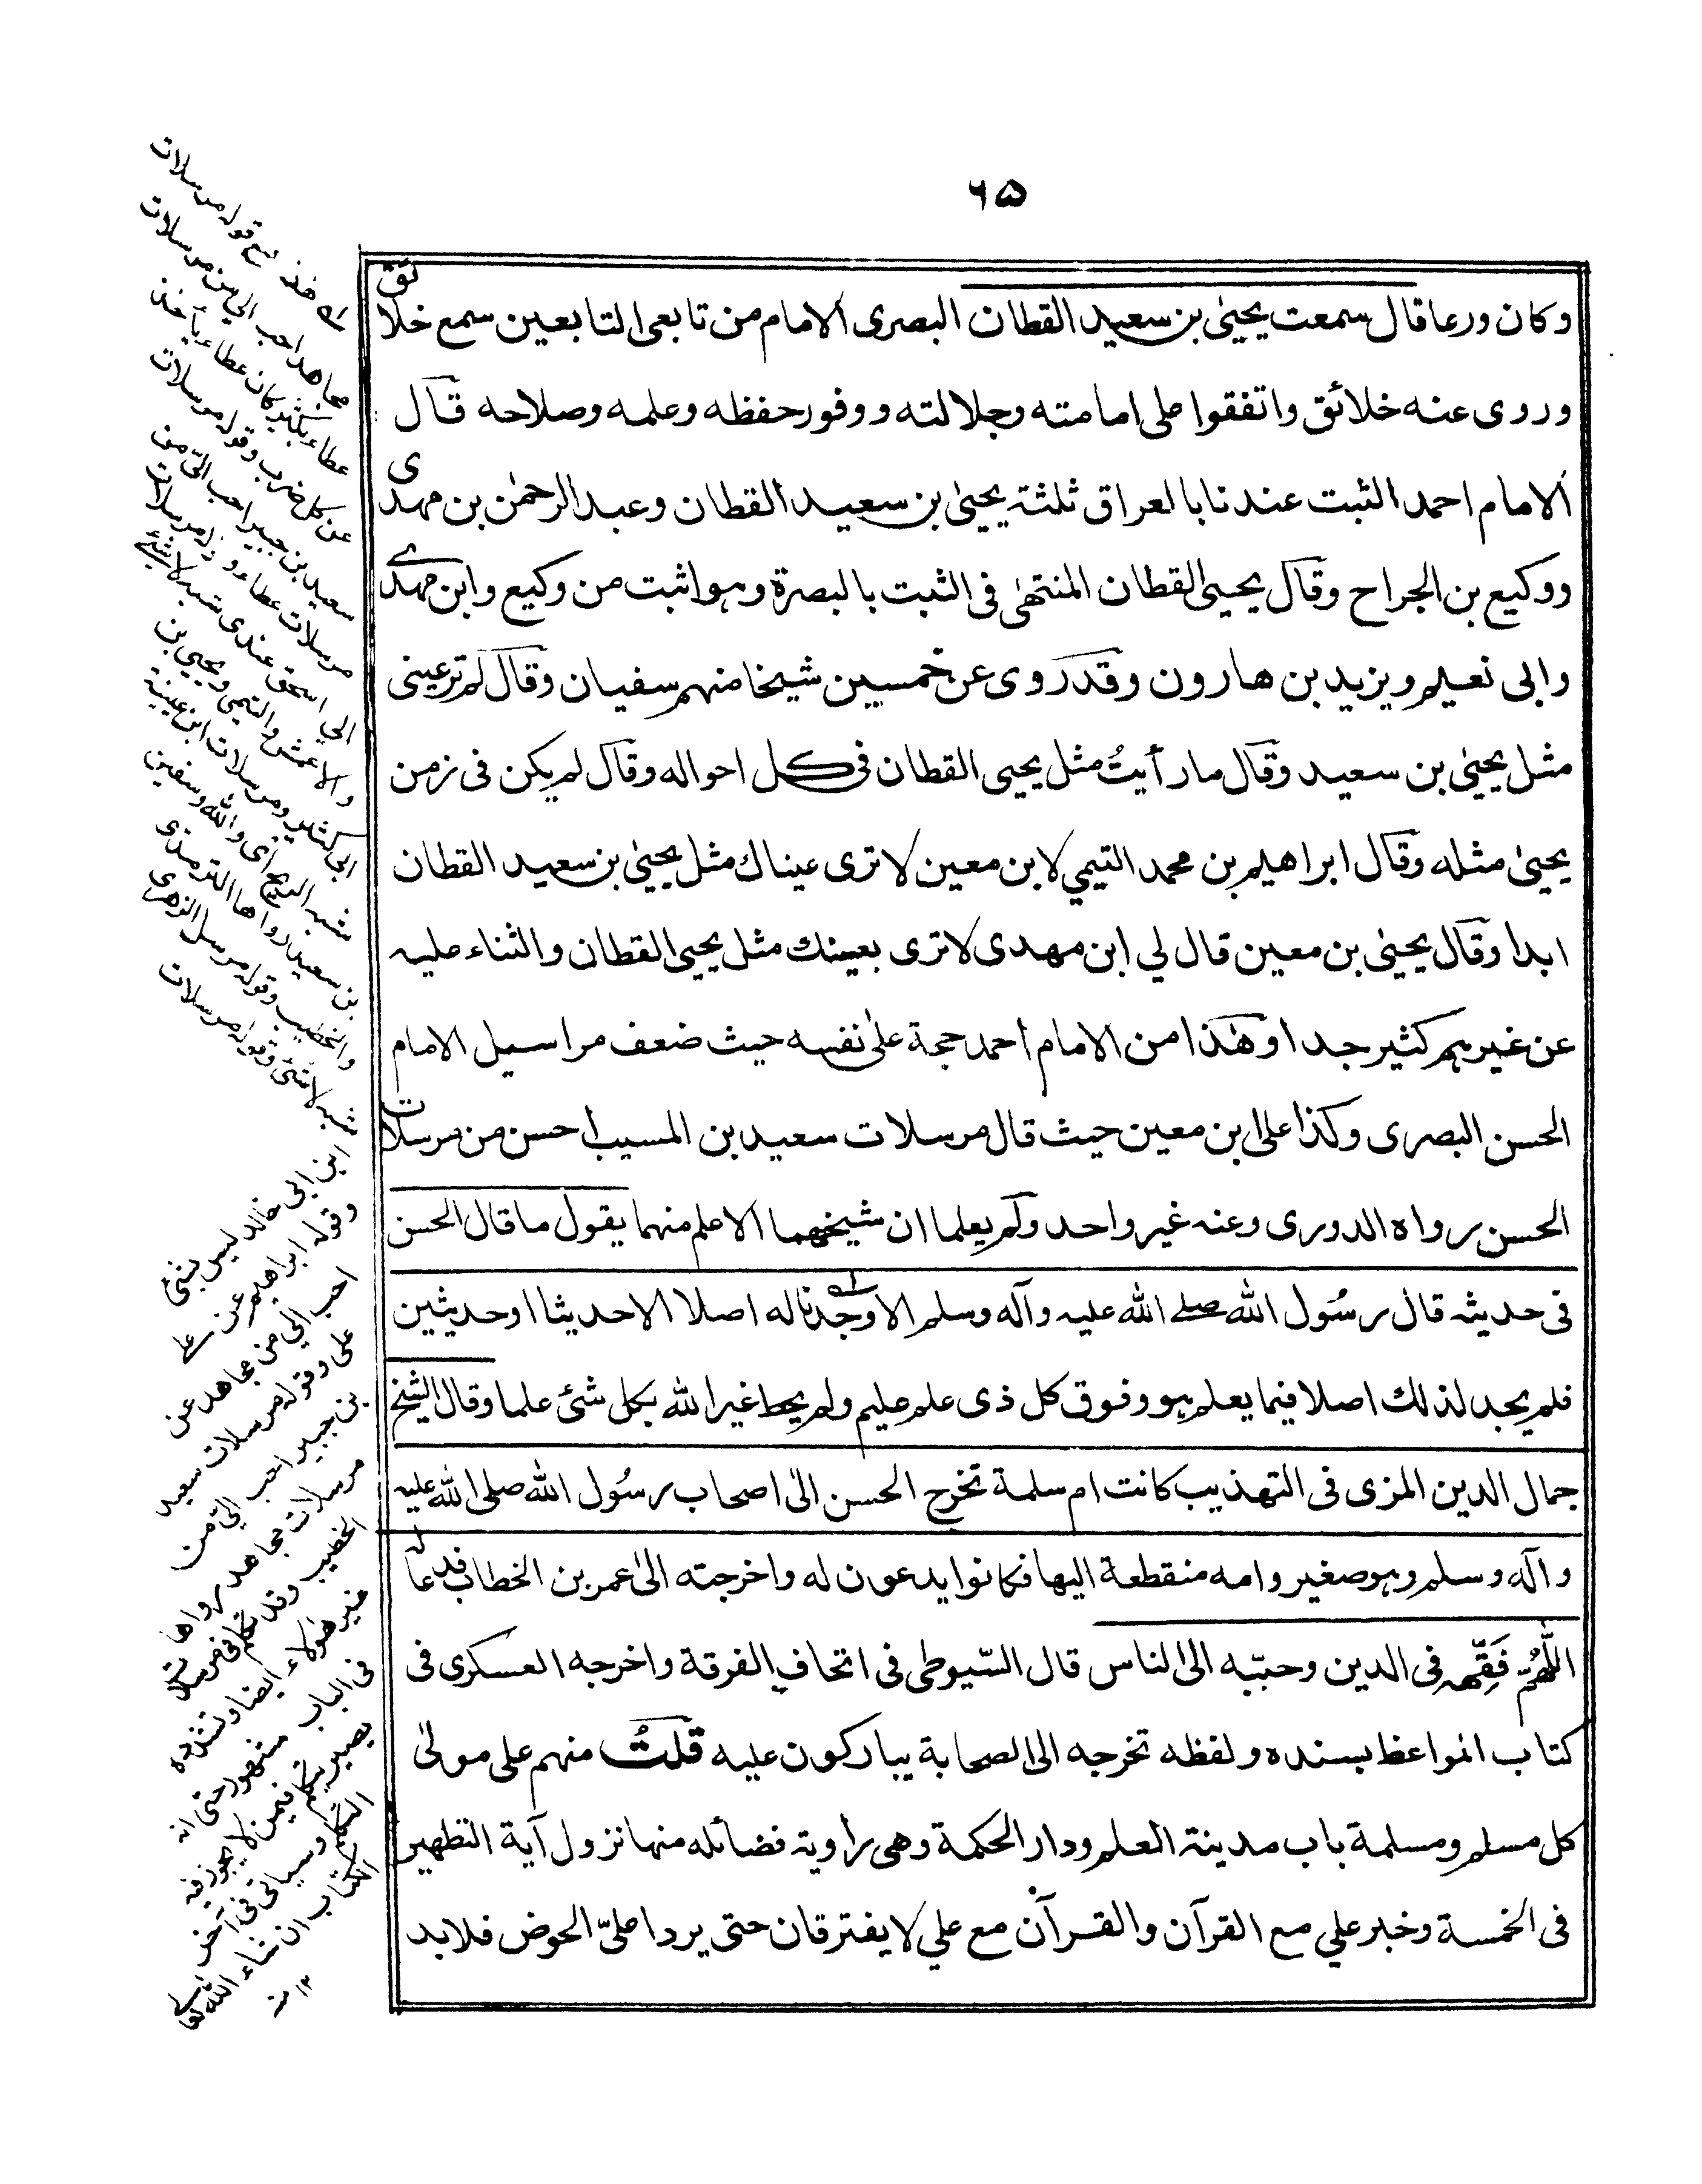 ٦۵
وكان ورعا قال سمعت يحيىٰ بن سعيد القطان البصرى الامام من تابعى التابعين سمع خلائق
وروى عنه خلائق واتفقوا على امامته وجلالته ووفور حفظه وعلمه وصلاحه قال
الامام احمد الثبت عندنا بالعراق ثلثة يحيىٰ بن سعيد القطان وعبد الرحمٰن بن مهدى
ووكيع بن الجراح وقال يحيى القطان المنتهىٰ فى الثبت بالبصرة وهو اثبت من وكيع وابن مهدى
وابى نعيم ويزيد بن هارون وقد روى عن خمسين شيخا منهم سفيان وقال لم تر عينى
مثل يحيىٰ بن سعيد وقال ما رأيتُ مثل يحيى القطان فى كل احواله وقال لم يكن فى زمن
يحيىٰ مثله وقال ابراهيم بن محمد التيمي لابن معين لا ترى عيناك مثل يحيىٰ بن سعيد القطان
ابدا وقال يحيىٰ بن معين قال لي ابن مهدى لا ترى بعينك مثل يحيى القطان والثناء عليه
عن غيرهم كثير جدا وهٰذا من الامام احمد حجة علىٰ نفسه حيث ضعف مراسيل الامام
الحسن البصرى وكذا على ابن معين حيث قال مرسلات سعيد بن المسيب احسن من مرسلات
الحسن رواه الدورى وعنه غير واحد ولم يعلما ان شيخهما الاعلم منهما يقول ما قال الحسن
فى حديثه قال رسُول الله صلے الله عليه وآله وسلم الا وجدنا له اصلا الا حديثا او حديثين
فلم يجد لذلك اصلا فيما يعلم هو وفوق كل ذى علم عليم ولم يحط غير الله بكل شئ علما وقال الشيخ
جمال الدين المزى فى التهذيب كانت ام سلمة تخرج الحسن الىٰ اصحاب رسُول الله صلى الله عليه
وآله وسلم وهو صغير وامه منقطعة اليها فكانوا يدعون له واخرجته الىٰ عمر بن الخطاب فدعا له
اللّٰهُمّ فَقِّهه فى الدين وحببّه الى الناس قال السّيوطى فى اتحاف الفرقة واخرجه العسكرى فى
كتاب المواعظ بسنده ولفظه تخرجه الى الصحابة يباركون عليه قلتُ منهم على مولىٰ
كل مسلم ومسلمة باب مدينة العلم ودار الحكمة وهى راوية فضائله منها نزول آية التطهير
فى الخمسة وخبر علي مع القرآن والقرآن مع علي لا يفترقان حتى يردا علىّ الحوض فلا بد
قوله مرسلات
مجاهد احب الي من مرسلات
عطاء بكثير كان عطاء يأخذ
عن كل ضرب وقوله مرسلات
سعيد بن جبير احب الىّ من
مرسلات عطاء و
ابى اسحق عندى شبه لا شئ
والاعمش والتيمى ويحيى بن
ابى كثير ومرسلات ابن عيينة
شبه الريح اى والله وسفين
بن سعيد رواها الترمذى
والخطيب وقوله مرسل الزهرى
شبه لا شئ وقوله مرسلات
ابن ابى خالد ليس بشئ
وقوله ابراهيم عن على
احب الي من مجاهد عن
على وقوله مرسلات سعيد
بن جبير احب الىّ من
مرسلات مجاهد رواها
الخطيب وقد تكلم فى مرسلات
غير هؤلاء ايضا وتشدده
فى الباب مشهور حتى انه
يصير يتكلم فيمن لا يجوز فيه
التكلم وسياتى فى آخر
الكتاب ان شاء الله تعالى
١٢ منه